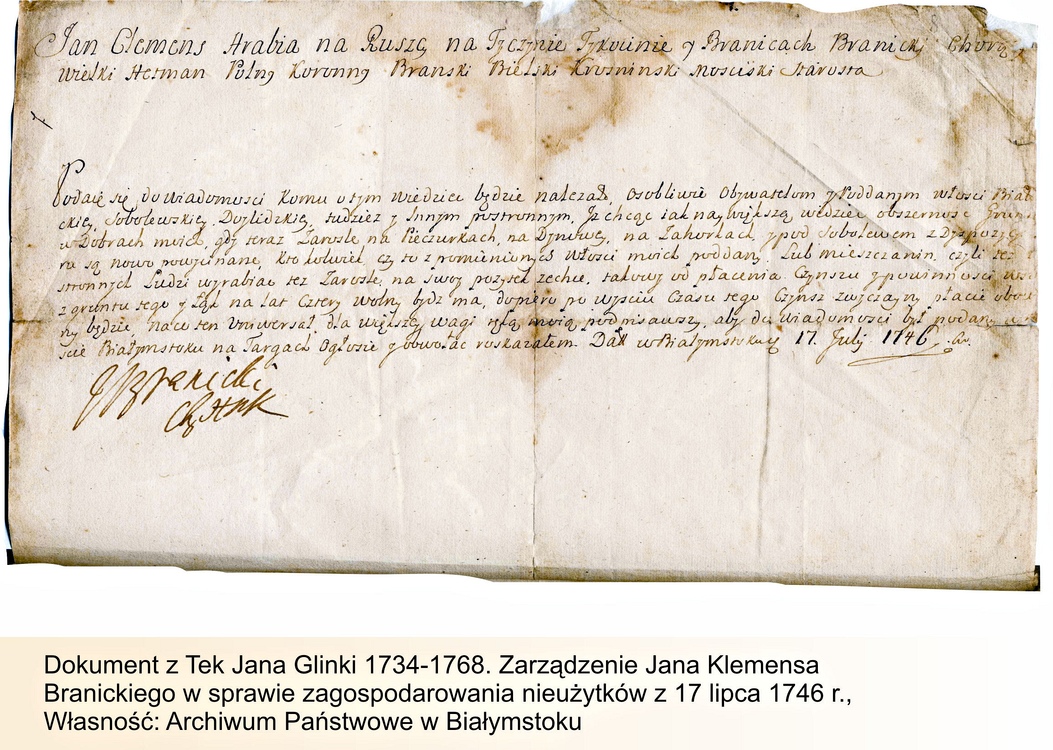 Jan Clemens Hrabia na Ruszcy na Tyczynie Tykocinie y Branicach Branicki Chorą
wielki Hetman Polny Koronny Branski Bielski Krosninski Mosciski Starosta
Podaię się do Wiadomosci Komu o tym wiedziec będzie nalezało, Osobliwie Obywatelom y Poddanym włosci Biało
ckiey, Sobolewskiey, Doylidzkiey, tudziez y Innym postronnym, Jz chcąc iak naywiększą wiedziec obszernosc Grun
w Dobrach moich, gdy teraz Zarosle na Pieczurkach, na Dyniowey, na Zahorkach, y pod Sobolewem z Dyspozyc
są nowo powycinane, Kto kolwiek czy to z pomienionych Włosci moich poddany, Lub mieszczanin, czyli tez
stronnych Ludzi wyrabiac tez Zarosle, na swoy pozytek zechce, takowy od płacenia Czynszu y powinnosci
z gruntu tego y Łąk na lat Cztery wolny bydz ma, dopiero po wysciu Czasu tego Czynsz zwyczayny płacic obow
ny będzie, na co ten Uniwersał dla większey wagi ręką moią podpisawszy, aby do Wiadomosci był podany
scie Białymstoku na Targach Ogłosic y obwołac roskazałem. Dat w Białymstoku 17. Julij 1746
JBranicki
Dokument z Tek Jana Glinki 1734-1768. Zarządzenie Jana Klemensa
Branickiego w sprawie zagospodarowania nieużytków z 17 lipca 1746 r.,
Własność: Archiwum Państwowe w Białymstoku